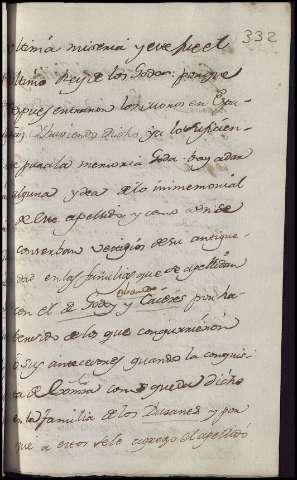 332
ultima miseria y este fue el
ultimo Rey de los Godos porque
despues entraron los moros en Espa-
ña, haviendo dicho ya lo suficien-
te para la memoria Goda. voy a dar
alguna ydea de lo inmemorial
de este apellido y como aun se
conserban vestigios de su antigue-
dad en las familias que se apellidan
Obando
con el de Godoy y Caceres por ha-
tenido de los que conquirieron
o sus antecesores quando la conquis-
ta de como queda dicho
en la familia de los Duranes y por
que a estos se le agrego el apellido